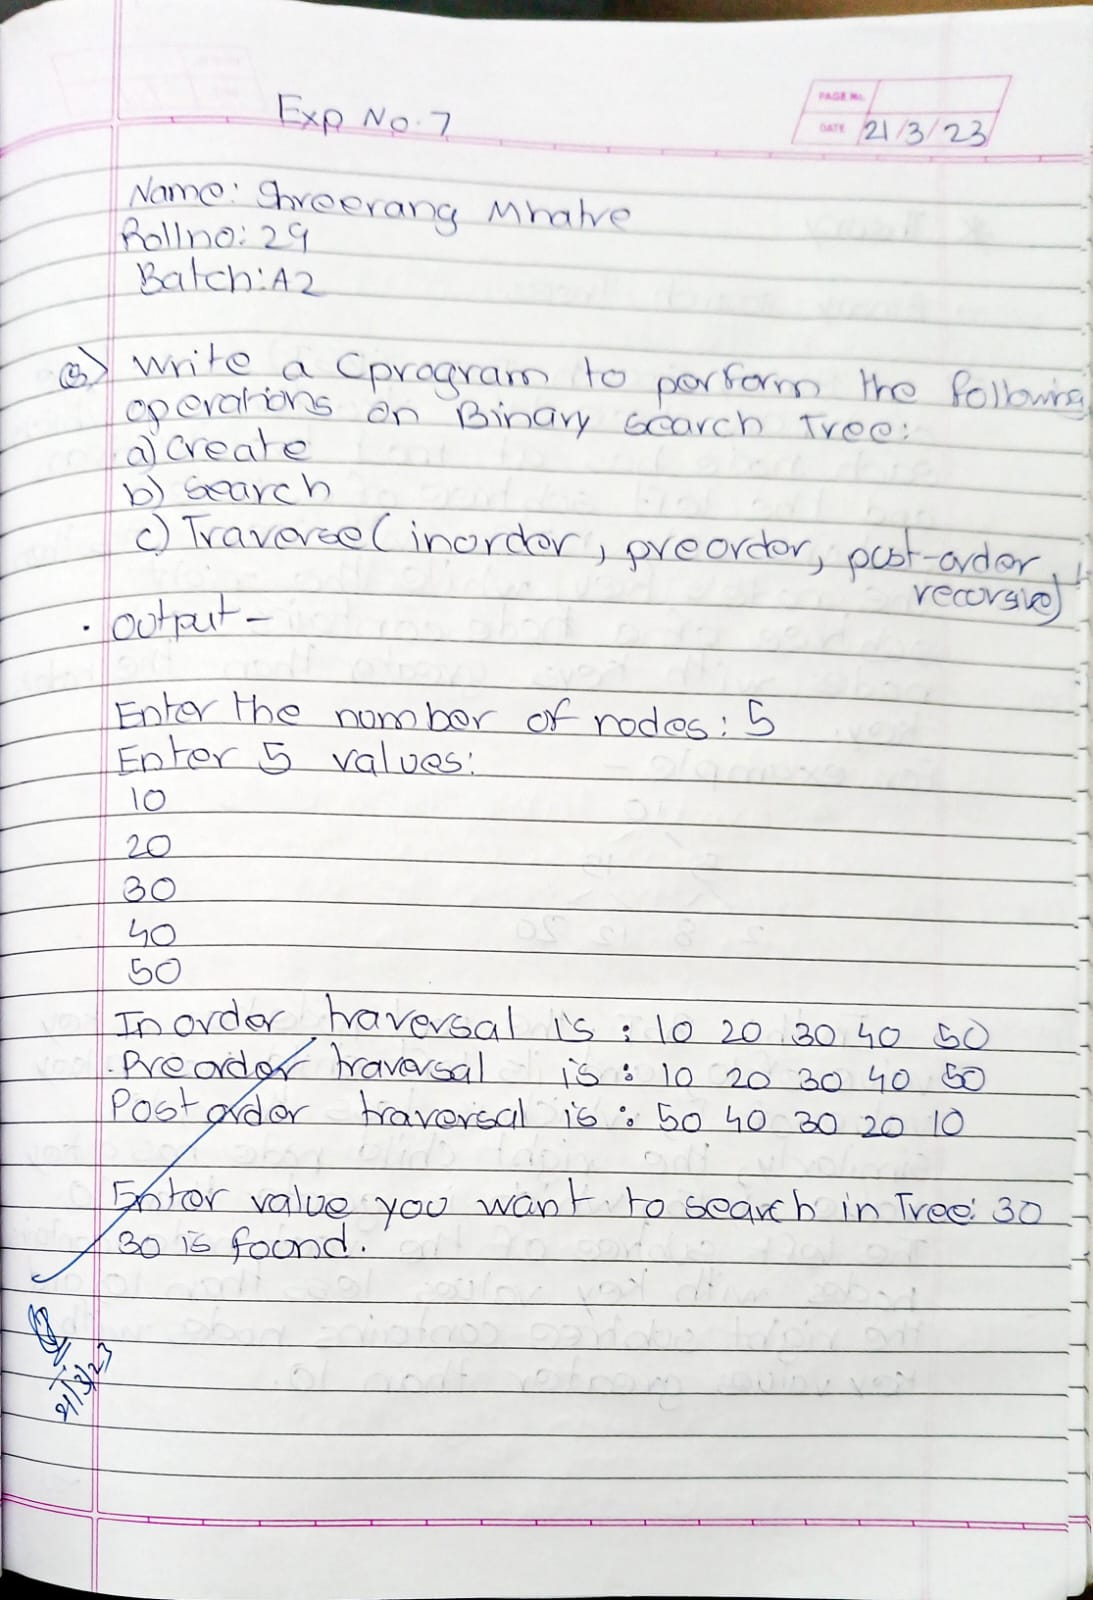 Exp No. 7
PAGE No.
DATE 21/3/23
Name: Shreerang Mhatre
Rollno: 29
Batch: A2
Q) Write a C program to perform the following
operations on Binary search Tree:
a) Create
b) Search
c) Traverse (inorder, preorder, post-order,
recorsive)
• Output -
Enter the nomber of nodes: 5
Enter 5 values:
10
20
30
40
50
Inorder traversal is : 10 20 30 40 50
Preorder traversal is : 10 20 30 40 50
Post order traversal is : 50 40 30 20 10
Enter value you want to search in Tree: 30
30 is found.
21/3/23